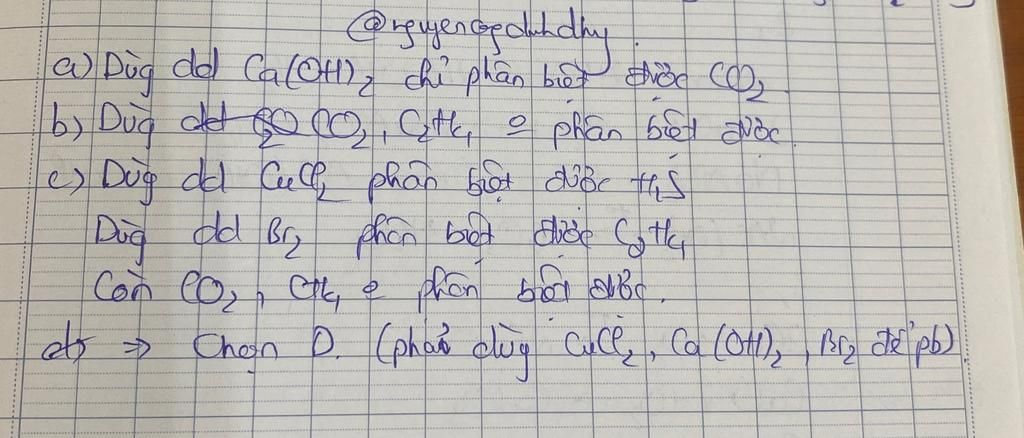 @nguyengocdinhdhy.
a) Dùg dd Ca(OH)₂ chỉ phân biệt được CO₂
b) Dùg dd CO₂, C₂H₄, 0 phân biệt được
c) Dùg dd CuCl₂ phân biệt được H₂S
Dùg dd Br₂ phân biệt được C₂H₄
Còn CO₂, CH₄ 0 phân biệt được.
d) ⇒ Chọn D. (phải dùg CuCl₂, Ca(OH)₂, Br₂ để pb).